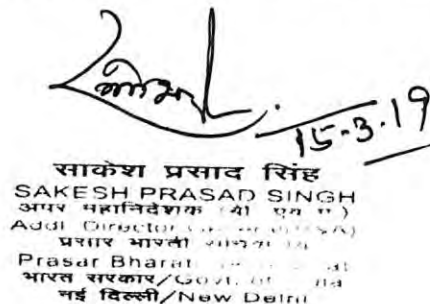 15-3-19
साकेश प्रसाद सिंह
SAKESH PRASAD SINGH
अपर महानिदेशक
Addl. Director
प्रसार भारती
Prasar Bharati
भारत सरकार/Govt. of
नई दिल्ली/New Delhi